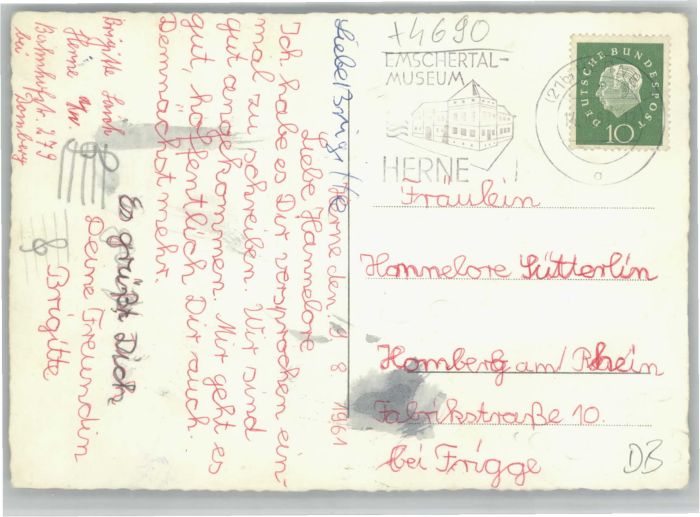 Liebe Brigitte
Herne den 9 8 1961
Liebe Hannelore
Ich habe es Dir versprochen ein-
mal zu schreiben. Wir sind
gut angekommen. Mir geht es
gut, hoffentlich Dir auch.
Demnächst mehr.
Es grüßt Dich
Deine Freundin
Brigitte
Brigitte
Herne i/W.
Bahnhofstr. 279
bei Homberg
+4690
EMSCHERTAL-
MUSEUM
HERNE
DEUTSCHE BUNDESPOST
10
(21b)
a
Fräulein
Hannelore Sütterlin
Homberg am/Rhein
Fabrikstraße 10.
bei Frigge
DB